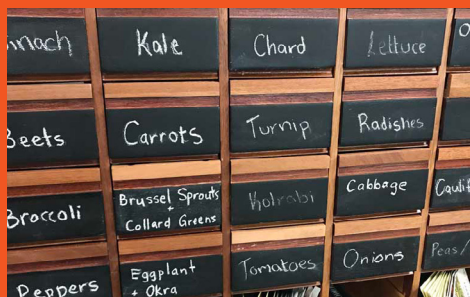 Kale
Chard
Lettuce
Beets
Carrots
Turnip
Radishes
Broccoli
Brussel Sprouts
+
Collard Greens
Kolrabi
Cabbage
Peppers
Eggplant
+ Okra
Tomatoes
Onions
Peas/